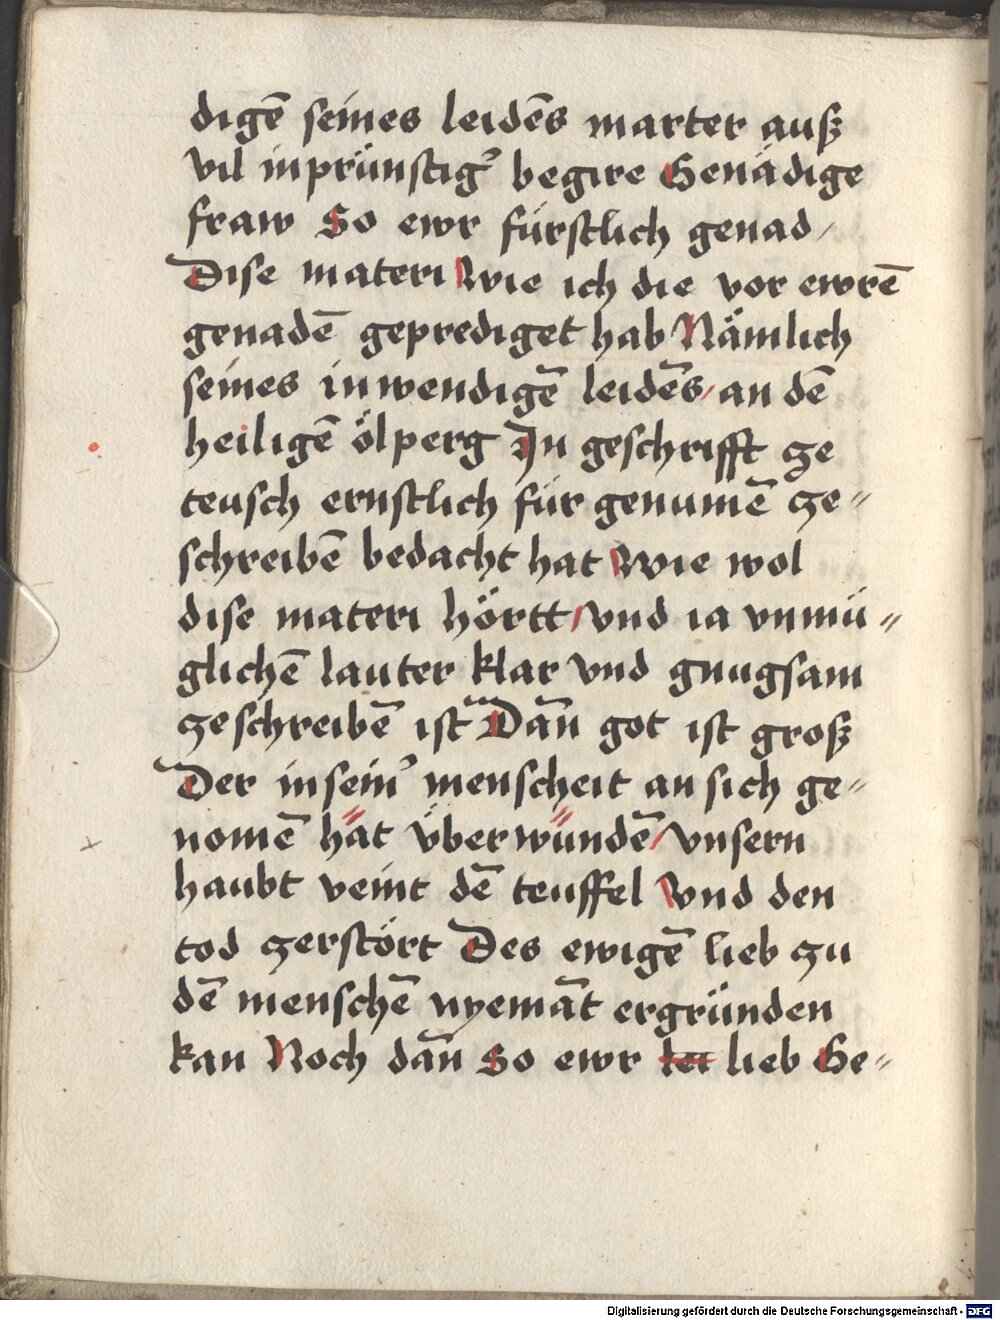 digē seines leidēs marter auß
vil inprünstig᷑ begire Genädige
fraw So ewr fürstlich genad/
Dise materi Wie ich die vor ewrē
genadē geprediget hab Nämlich
seines inwendigē leidēs/an dē
heiligē ölperg In geschrifft ze
teusch ernstlich für genumē ze⸗
schreibē bedacht hat Wie wol
dise materi hörtt/vnd ia vnmü⸗
glichē lauter klar vnd gnugsam
zeschreibē ist Dan̄ got ist groß
Der in sein᷑ menscheit an sich ge⸗
nomē hät v̈ber wündē/vnsern
haubt veint dē teuffel Vnd den
tod zerstört Des ewigē lieb zu
dē menschē nyemāt ergründen
kan Noch dan̄ So ewr lieb Ge⸗
Digitalisierung gefördert durch die Deutsche Forschungsgemeinschaft - DFG